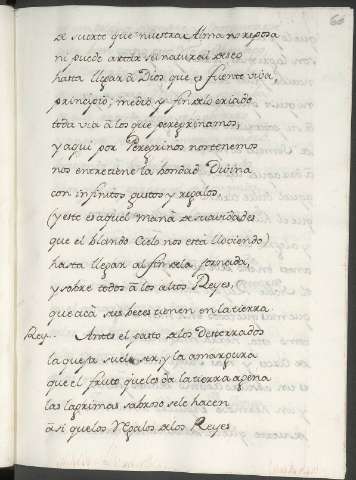 66
de suerte que nuestra Alma no reposa
ni puede artar su natural deseo
hasta llegar a Dios que es fuente viva,
principio, medio y fin de lo criado
toda via a los que peregrinamos,
y aqui por Peregrinos nos tenemos
nos entretiene la bondad Divina
con infinitos gustos y regalos,
(y este es aquel maná de suavidades
que el blando Cielo nos está lloviendo)
hasta llegar al fin de la jornada,
y sobre todos a los altos Reyes,
que acá sus veces tienen en la tierra
Rey. Antes el pasto de los Desterrados
la quexa suele ser, y la amargura
que el fruto que los da la tierra agena
las lagrimas sabroso se le hacen
asi que los regalos de los Reyes